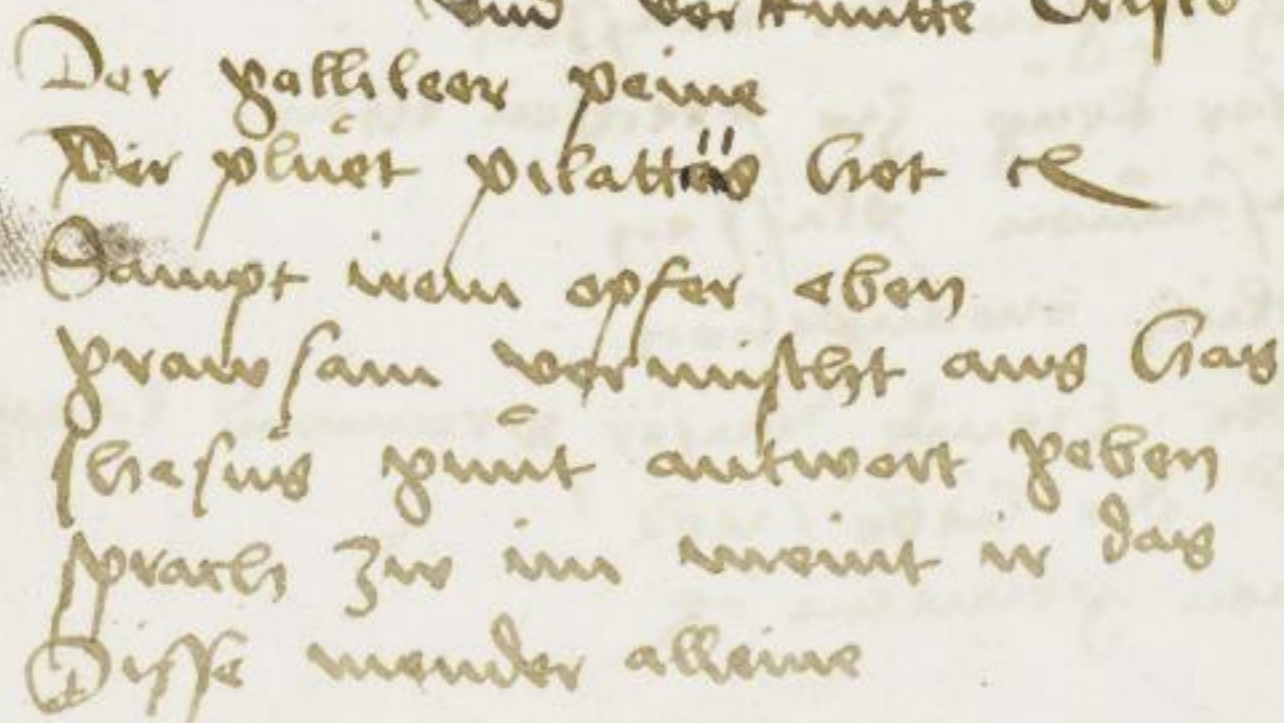 vnd verkuntte Cristo
Der gallileer peine
Der pluet pilattus het
Sampt irem opfer eben
grawsam vermischt aus has
Jhesus gunt antwort geben
sprach zw im meint ir das
Disse mender alleine